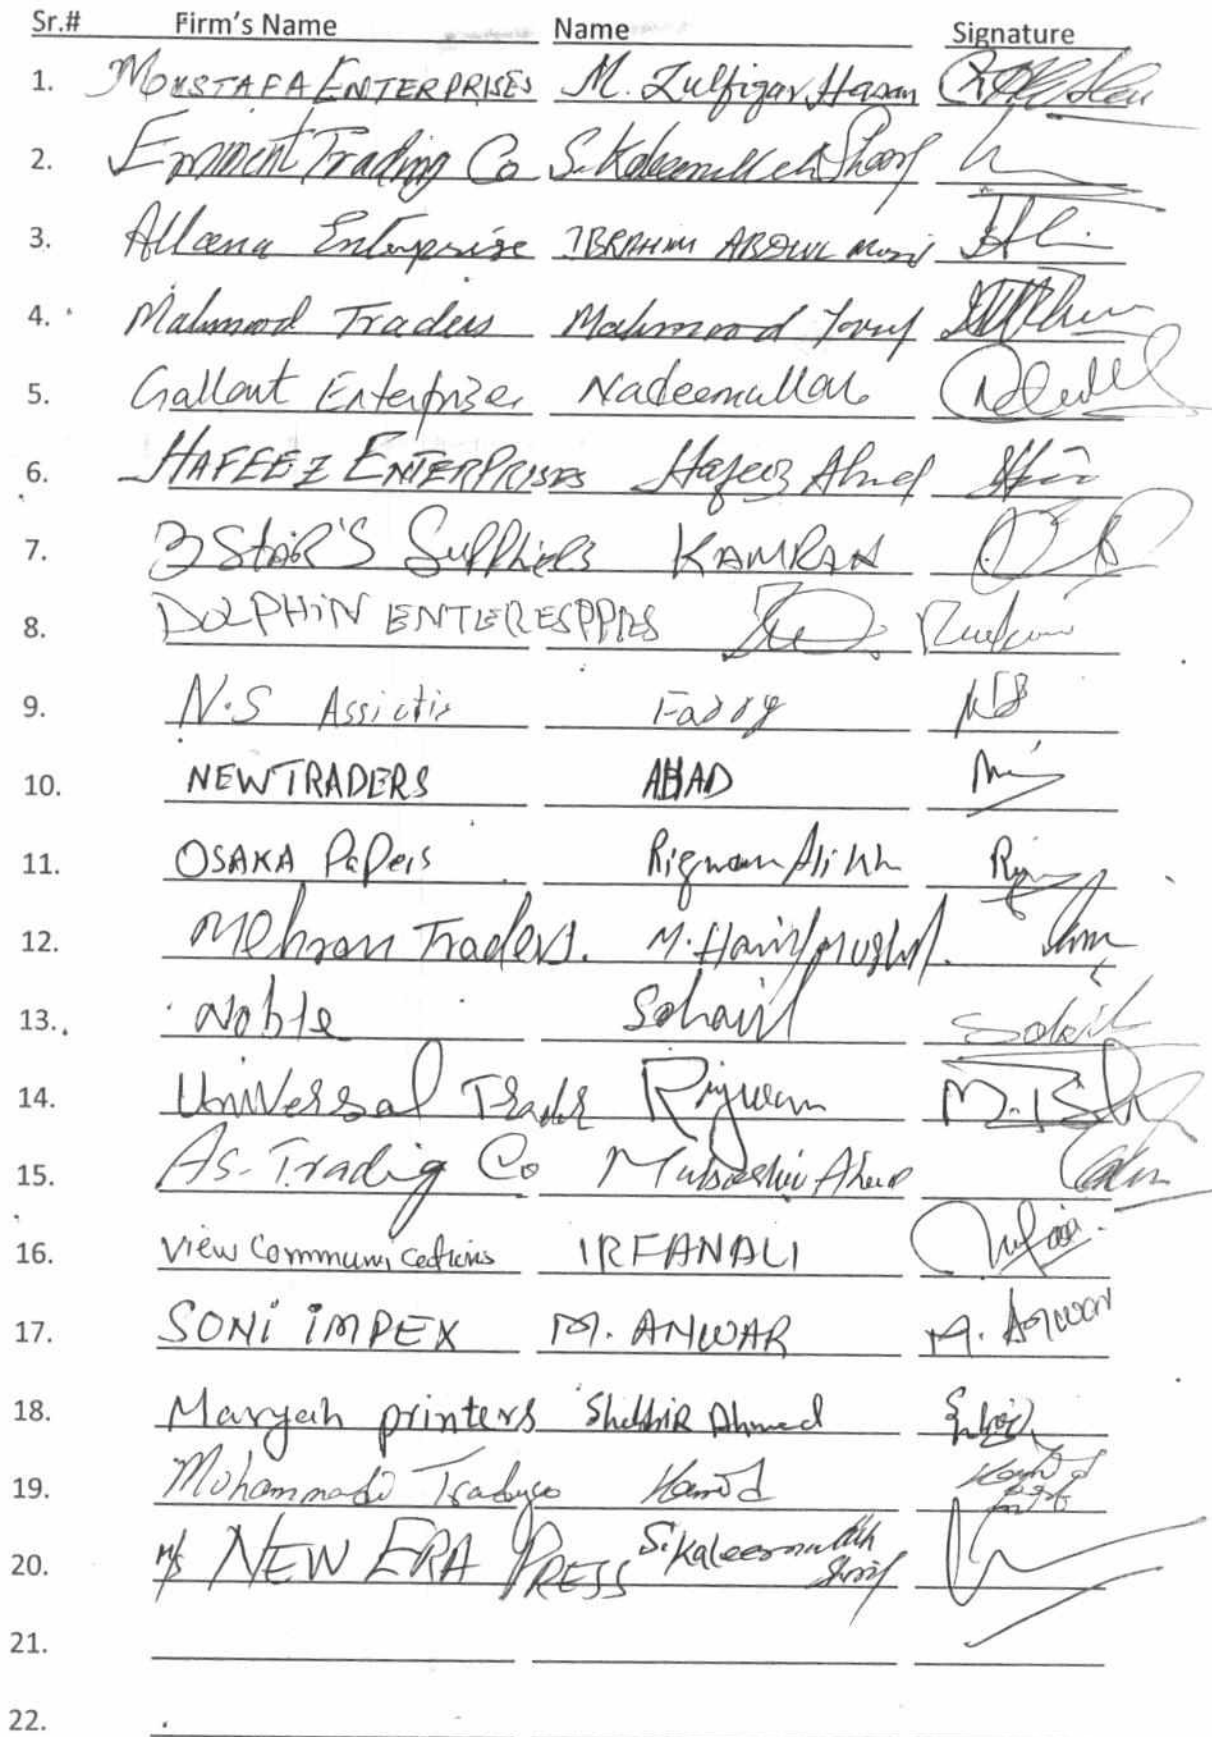 Sr.# Firm's Name Name Signature
1. MOUSTAFA ENTERPRISES M. Zulfiqar Hasan
2. Emment Trading Co S. Kaleemullah Sharif
3. Allana Enterprise IBRAHIM ABDUL
4. Mahmood Traders Mahmood Yousuf
5. Gallant Enterprises Nadeemullah
6. HAFEEZ ENTERPRISES Hafeez Ahmed
7. 3 STAR'S Suppliers KAMRAN
8. DOLPHIN
9. N.S Farooq
10. NEW TRADERS AHAD
11. OSAKA PaPers Rizwan Ali
12. Mehran Traders. M. Hanif
13. Noble Sohail Sohail
14. Universal Trader Rizwan
15. As-Tradig Co Mubashir Ahmed
16. View Communications IRFAN ALI
17. SONI IMPEX M. ANWAR M. Anwar
18. Maryah printers ShabbiR Ahmed
19. Mohammadi Hamid Hamid
20. M/s NEW ERA PRESS S. Kaleemullah Sharif
21.
22.